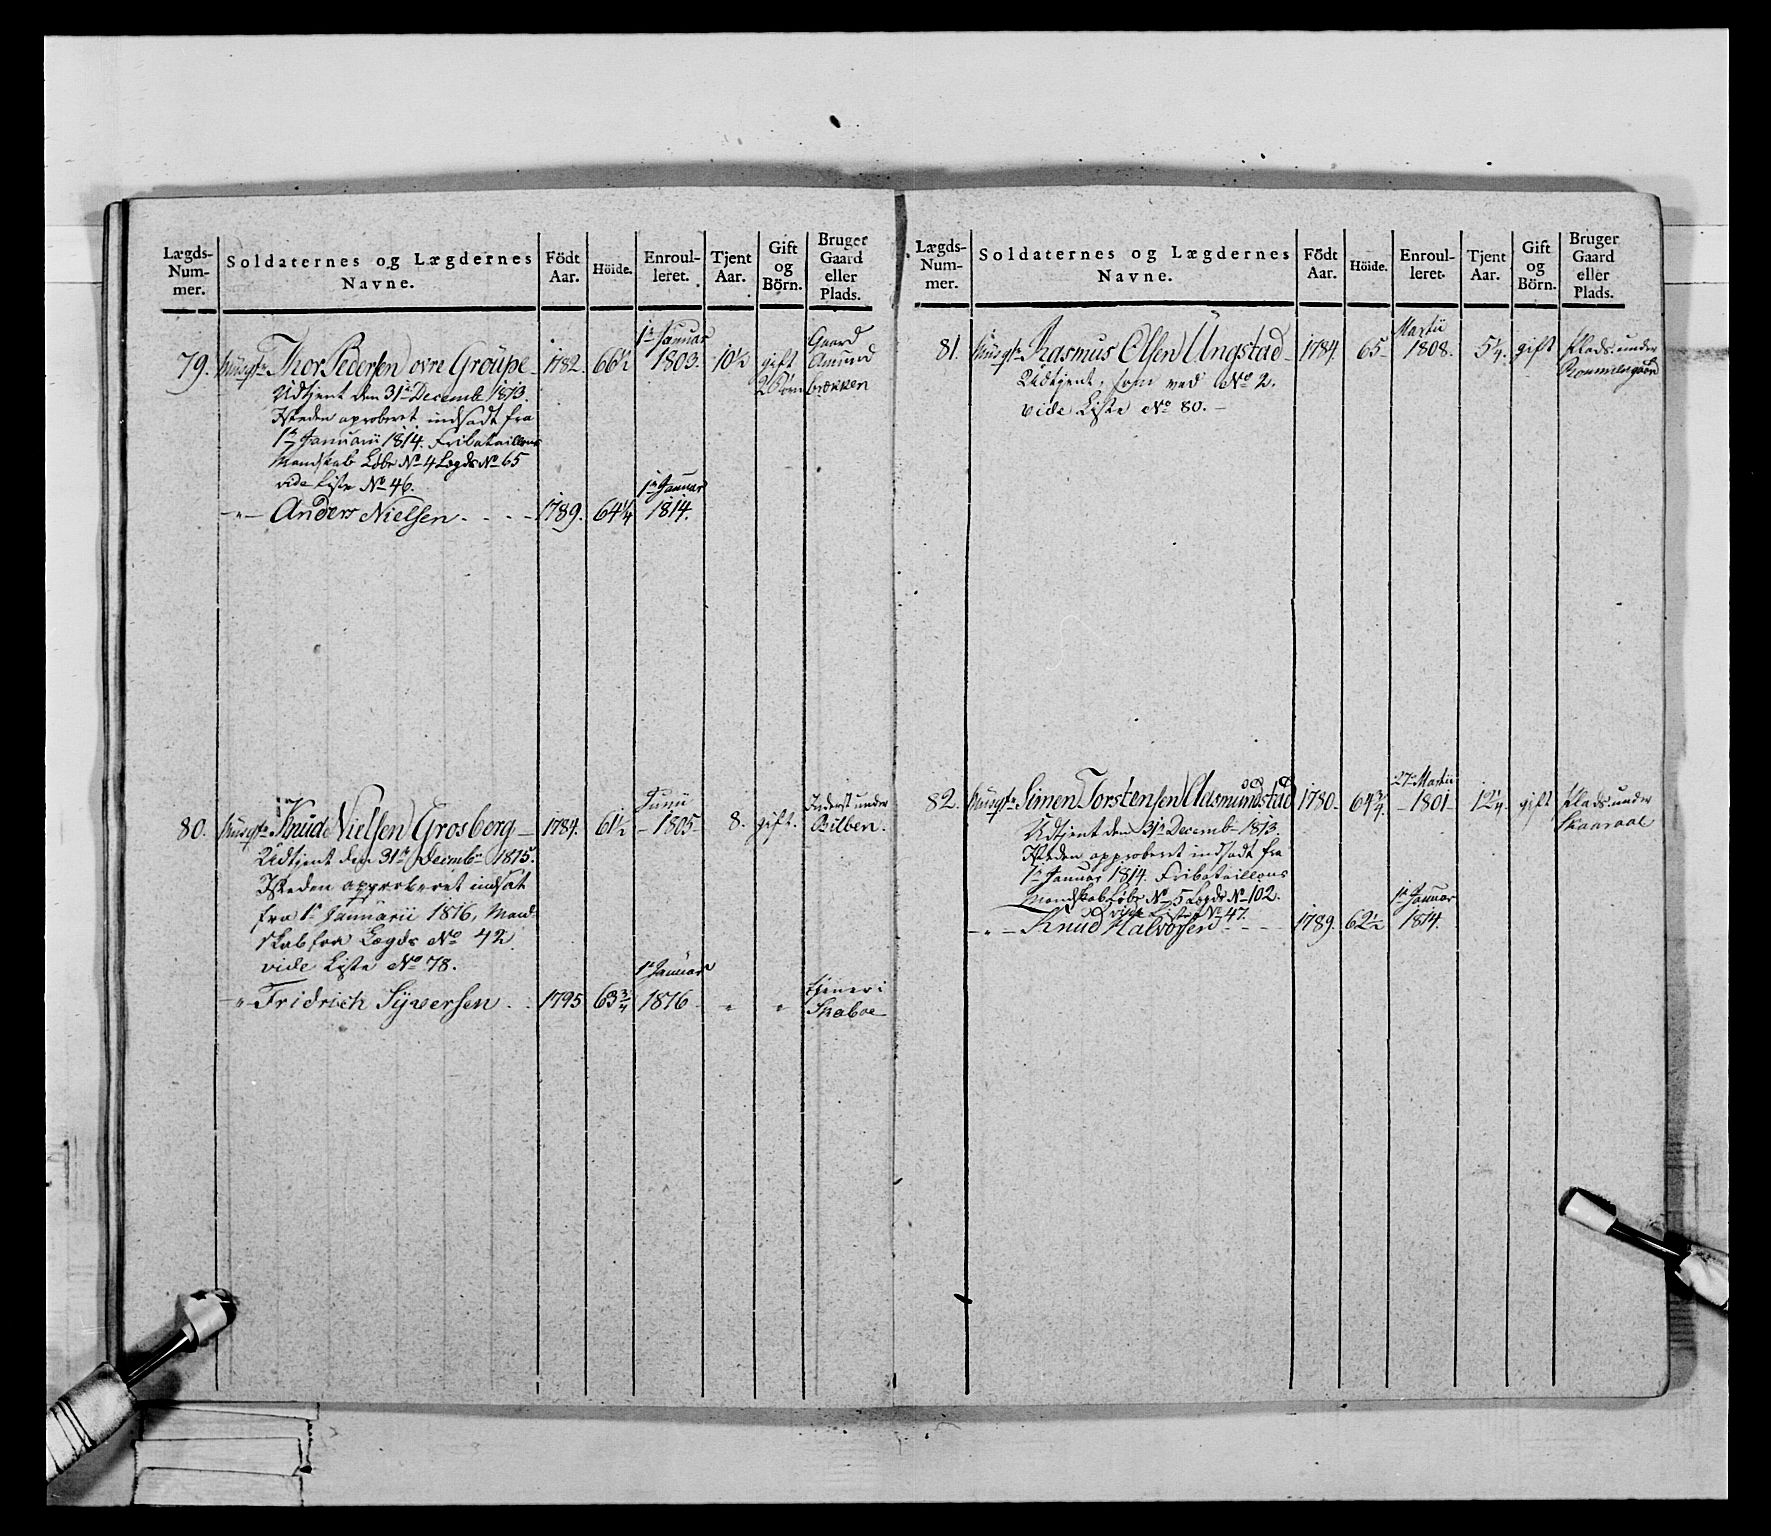 Lægds-Num-mer.
Soldaternes og Lægdernes Navne.
Födt Aar.
Höide.
Enroul-leret.
Tjent Aar.
Gift og Börn.
Bruger Gaard eller Plads.
1te Januar Gaard
79. Thor Pedersen övre Gröupe 1782. 66½ 1803. 10½ gift Amund
Udtjent den 31te Decemb 1813. 2 Börn bækken
Isteden aproberet indsadt fra
1te Januarii 1814. Fribataillons
Mandskab Löbe No 4 Lægds No 65
vide Liste No 46.
1te Januar
-"- Anders Nielsen 1789. 64¼ 1814.
Junii Inderst under
80. Knud Nielsen Grosberg 1784. 61½ 1805 8. gift. Bilben.
Udtjent den 31te Decembr 1815.
Isteden approberet indsat
fra 1te Januarii 1816, Mand-
skab fra Lægds No 42
vide Liste No 78.
1te Januar tjener i
" Fridrich Syversen 1795 63¾ 1816 " " Skaboe
Lægds-Num-mer.
Soldaternes og Lægdernes Navne.
Födt Aar.
Höide.
Enroul-leret.
Tjent Aar.
Gift og Börn.
Bruger Gaard eller Plads.
Martii
81. Rasmus Olsen Ungstad 1784. 65 1808. 5¼. gift Plads under
Udtjent, som ved No 2.
vide Liste No 80.
27de Martii
82. Simen Torstensen Aasmundstad 1780 64¾ 1801 12¼ gift Plads under
Udtjent den 31te Decemb 1813. Skaaraae
Isteden approberet indsadt fra
1te Januar 1814. Fribataillons
Mandskab Löbe No 5 Lægds No 102.
vide Liste No 47.
1te Januar
-"- Knud Halvorsen 1789. 62½ 1814.